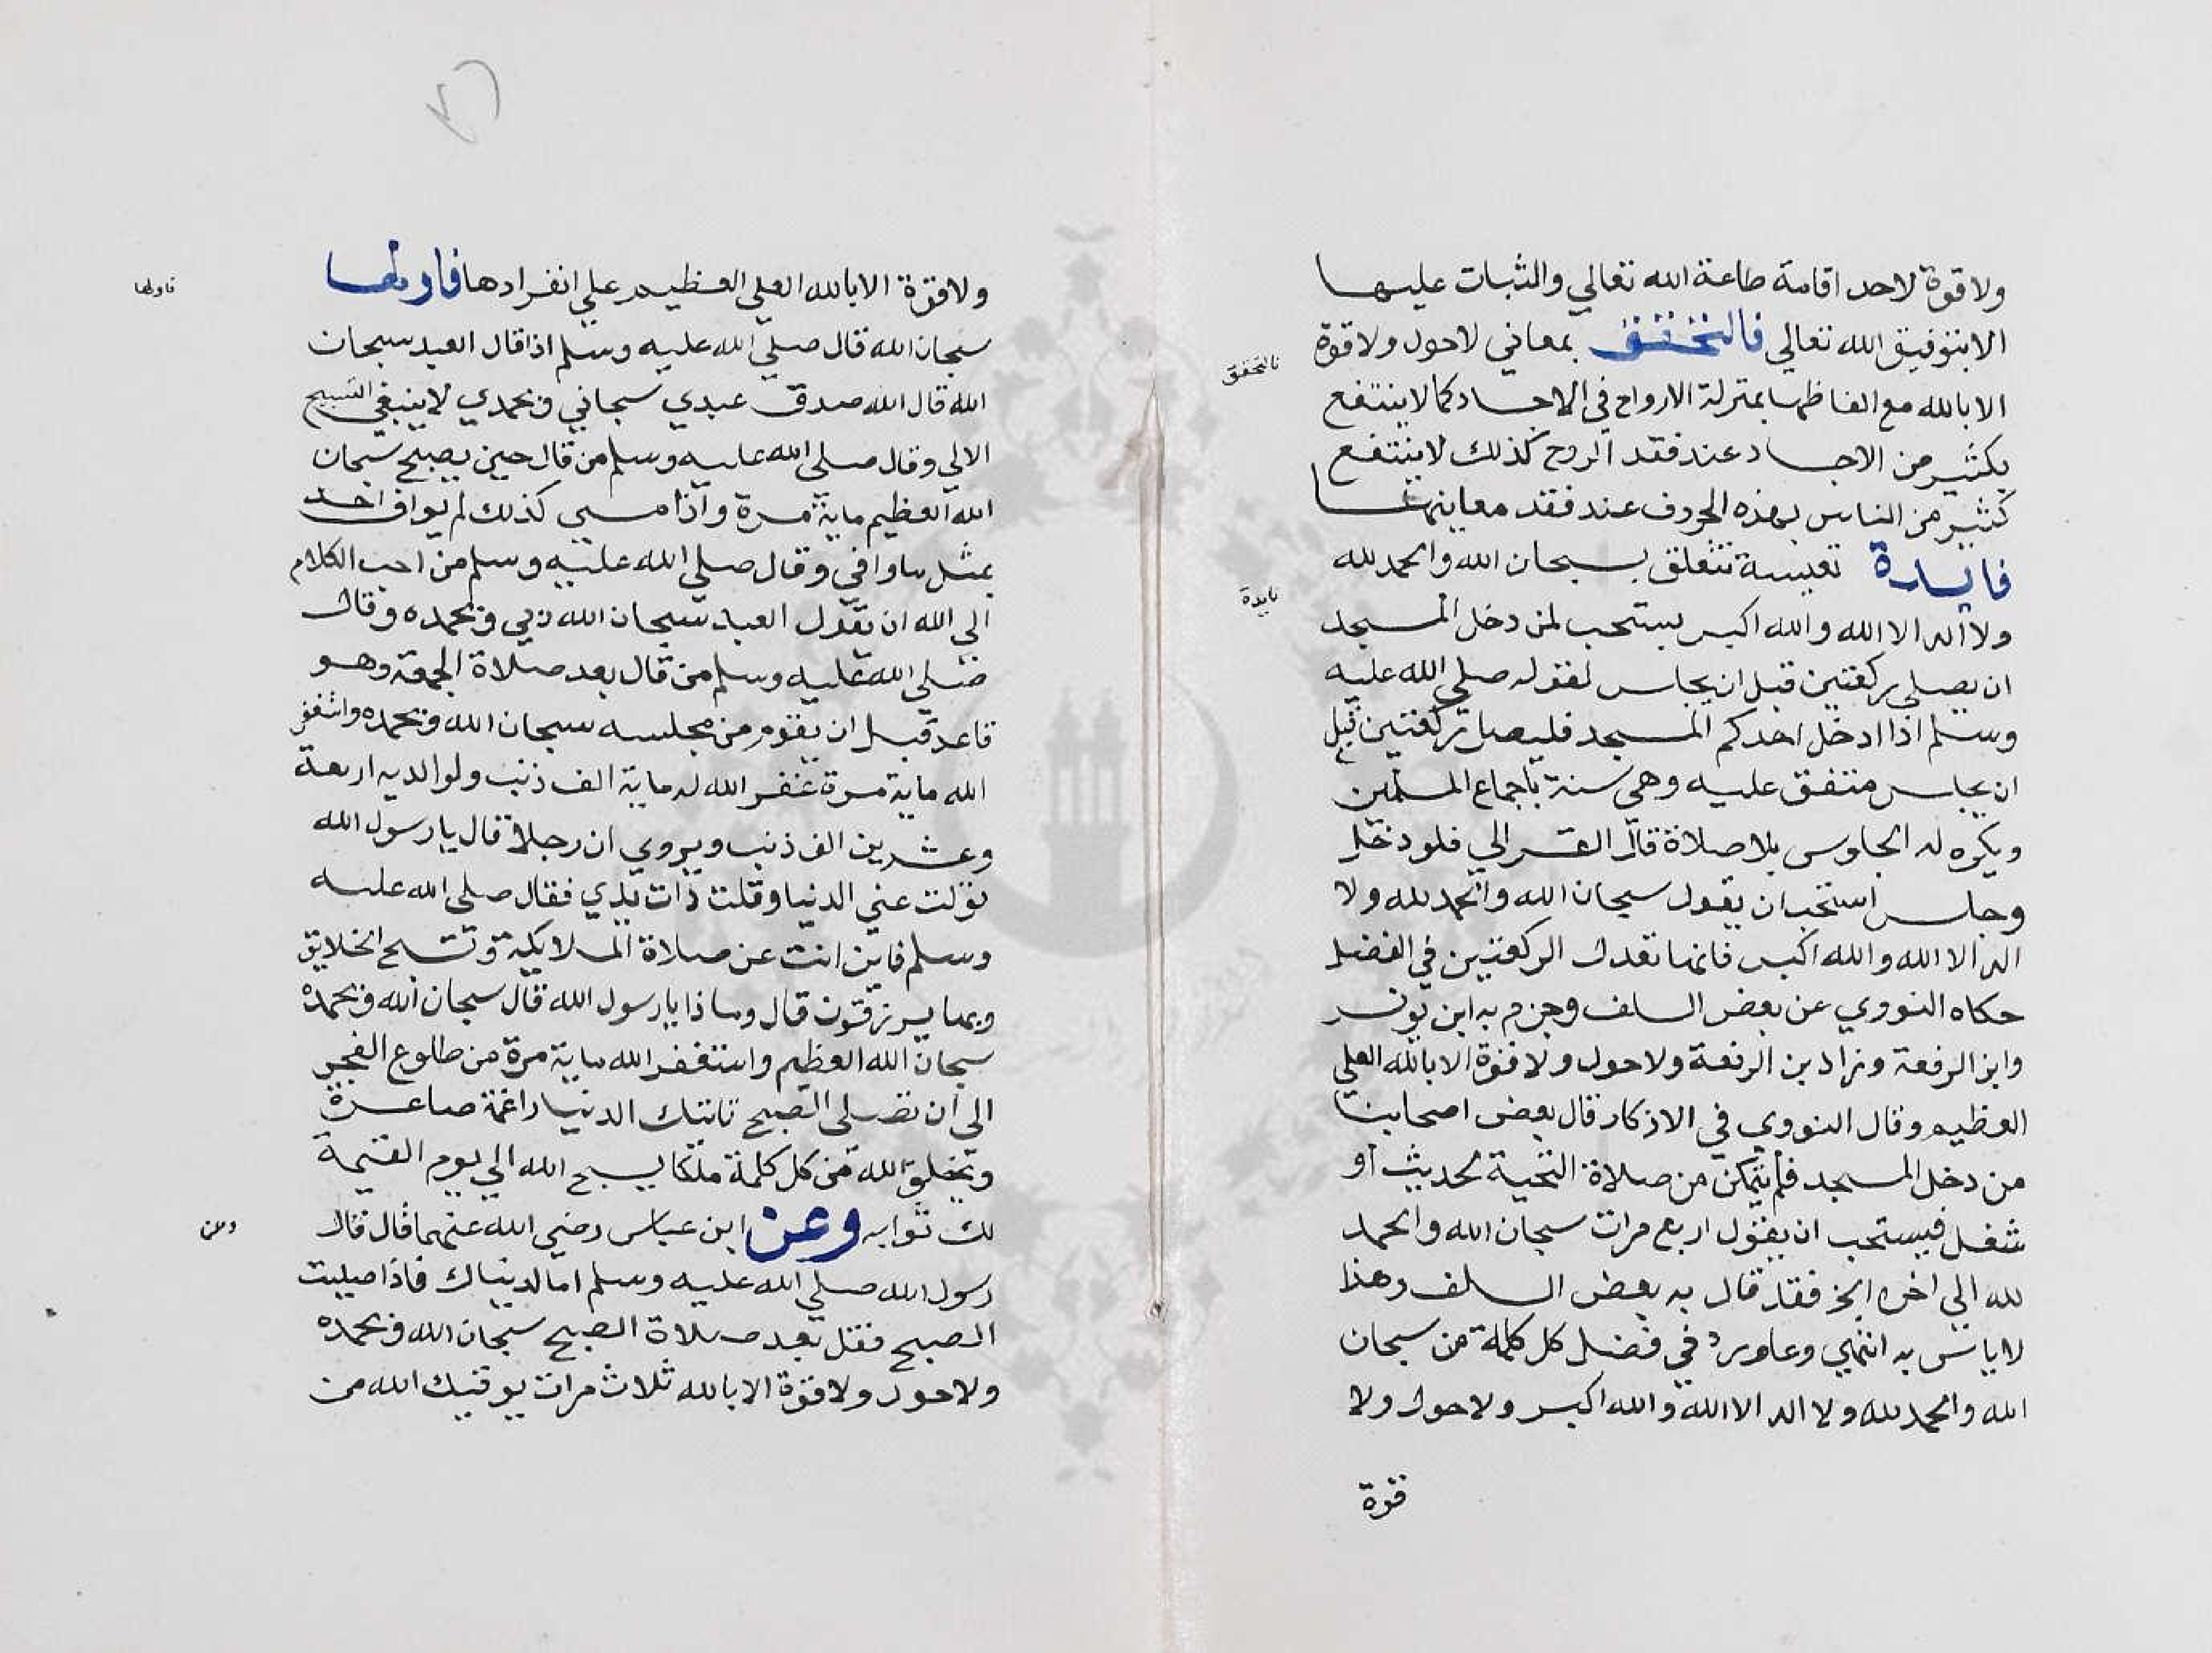 ولا قوة لاحد اقامة طاعة الله تعالي والثبات عليها
الا بتوفيق الله تعالي فالتحقق بمعاني لاحول ولا قوة
فالتحقق
الا بالله مع الفاظها بمنزلة الارواح في الاجساد كما لا ينتفع
بكثير من الاجساد عند فقد الروح كذلك لا ينتفع
كثير من الناس بهذه الحروف عند فقد معاينها
فايدة نفيسة تتعلق بسبحان الله والحمد لله
فايدة
ولا اله الا الله والله اكبر يستحب لمن دخل المسجد
ان يصلي ركعتين قبل ان يجلس لقوله صلي الله عليه
وسلم اذا ادخل احدكم المسجد فليصل ركعتين قبل
ان يجلس متفق عليه وهي سنة باجماع المسلمين
ويكره له الجلوس بلا صلاة قال الغزالي فلو دخل
وجلس استحب ان يقول سبحان الله والحمد لله ولا
اله الا الله والله اكبر فانها تعدل الركعتين في الفضل
حكاه النووي عن بعض السلف وجزم به ابن يونس
وابن الرفعة وزاد بن الرفعة ولا حول ولا قوة الا بالله العلي
العظيم وقال النووي في الاذكار قال بعض اصحابنا
من دخل المسجد فلم يتمكن من صلاة التحية لحديث او
شغل فيستحب ان يقول اربع مرات سبحان الله والحمد
لله الي اخره الخ فقد قال به بعض السلف وهذا
لا باس به انتهي وعاورد في فضل كل كلمة من سبحان
الله والحمد لله ولا اله الا الله والله اكبر ولا حول ولا
قوة
ولا قوة الا بالله العلي العظيم علي انفرادها فاولها
فاولها
سبحان الله قال صلي الله عليه وسلم اذا قال العبد سبحان
الله قال الله صدق عبدي سبحاني وبحمدي لا ينبغي التسبيح
الا لي وقال صلي الله عليه وسلم من قال حين يصبح سبحان
الله العظيم ماية مرة واذا امسي كذلك لم يواف احد
بمثل ما وافي وقال صلي الله عليه وسلم من احب الكلام
الي الله ان يقول العبد سبحان الله ربي وبحمده وقال
صلي الله عليه وسلم من قال بعد صلاة الجمعة وهو
قاعد قبل ان يقوم من مجلسه سبحان الله وبحمده واستغفر
الله ماية مرة غفر الله له ماية الف ذنب ولوالديه اربعة
وعشرين الف ذنب ويروي ان رجلا قال يا رسول الله
تولت عني الدنيا وقلت ذات يدي فقال صلي الله عليه
وسلم فاين انت عن صلاة الملايكة وتسبح الخلايق
وبما يرزقون قال وماذا يا رسول الله قال سبحان الله وبحمده
سبحان الله العظيم واستغفر الله ماية مرة من طلوع الفجر
الي ان تصلي الصبح تاتيك الدنيا راغمة صاغرة
ويخلق الله من كل كلمة ملكا يسبح الله الي يوم القيمة
لك ثوابه وعن ابن عباس رضي الله عنهما قال قال
وعن
رسول الله صلي الله عليه وسلم اما لدنياك فاذا صليت
الصبح فقل بعد صلاة الصبح سبحان الله وبحمده
ولا حول ولا قوة الا بالله ثلاث مرات يوقيك الله من